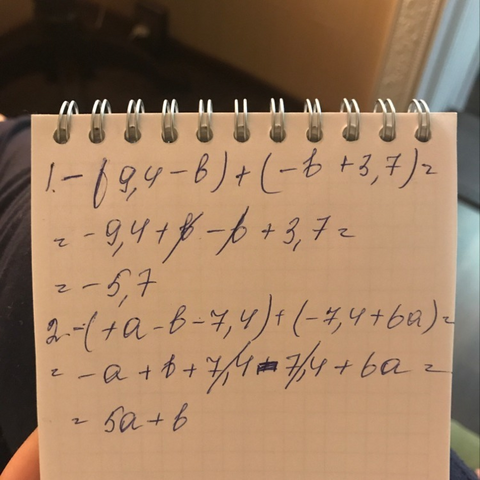 1. -(9,4-b)+(-b+3,7)=
= -9,4+b-b+3,7=
= -5,7
2. -(+a-b-7,4)+(-7,4+6a)=
= -a+b+7,4-7,4+6a=
= 5a+b